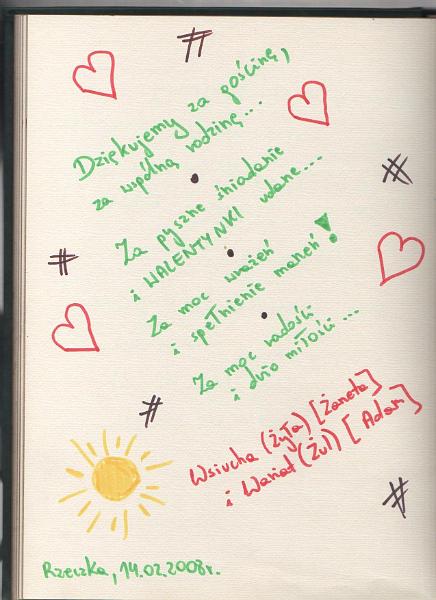 Dziękujemy za gościnę,
za wspólną rodzinę...
Za pyszne śniadanie
i WALENTYNKI udane...
Za moc wrażeń
i spełnienie marzeń!
Za moc radości
i dużo miłości...
Wsiucha (Żyła) [Żaneta]
i Wariat (Żul) [Adam]
Rzeczka, 14.02.2008r.